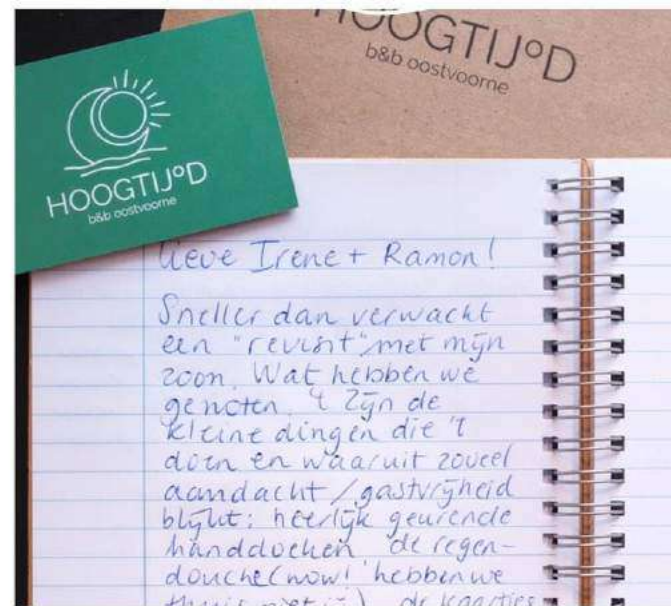 HOOGTIJºD
b&b oostvoorne
HOOGTIJºD
b&b oostvoorne
Lieve Irene + Ramon!
Sneller dan verwacht
een "revisit" met mijn
zoon. Wat hebben we
genoten. 't Zijn de
kleine dingen die 't
doen en waaruit zoveel
aandacht / gastvrijheid
blijkt: heerlijk geurende
handdoeken de regen-
douche (wow! hebben we
thuis niet :-) de kaartjes